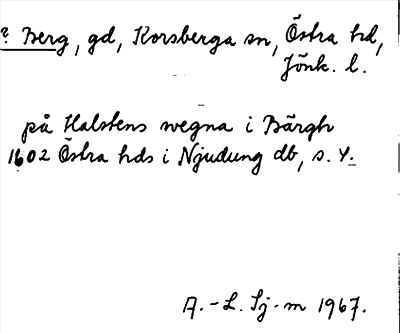 ? Berg, gd, Korsberga sn, Östra hd,
Jönk. l.
på Halstens wegna i Bärgh
1602 Östra hds i Njudung db, s. 4.
A.-L. Sj-m 1967.